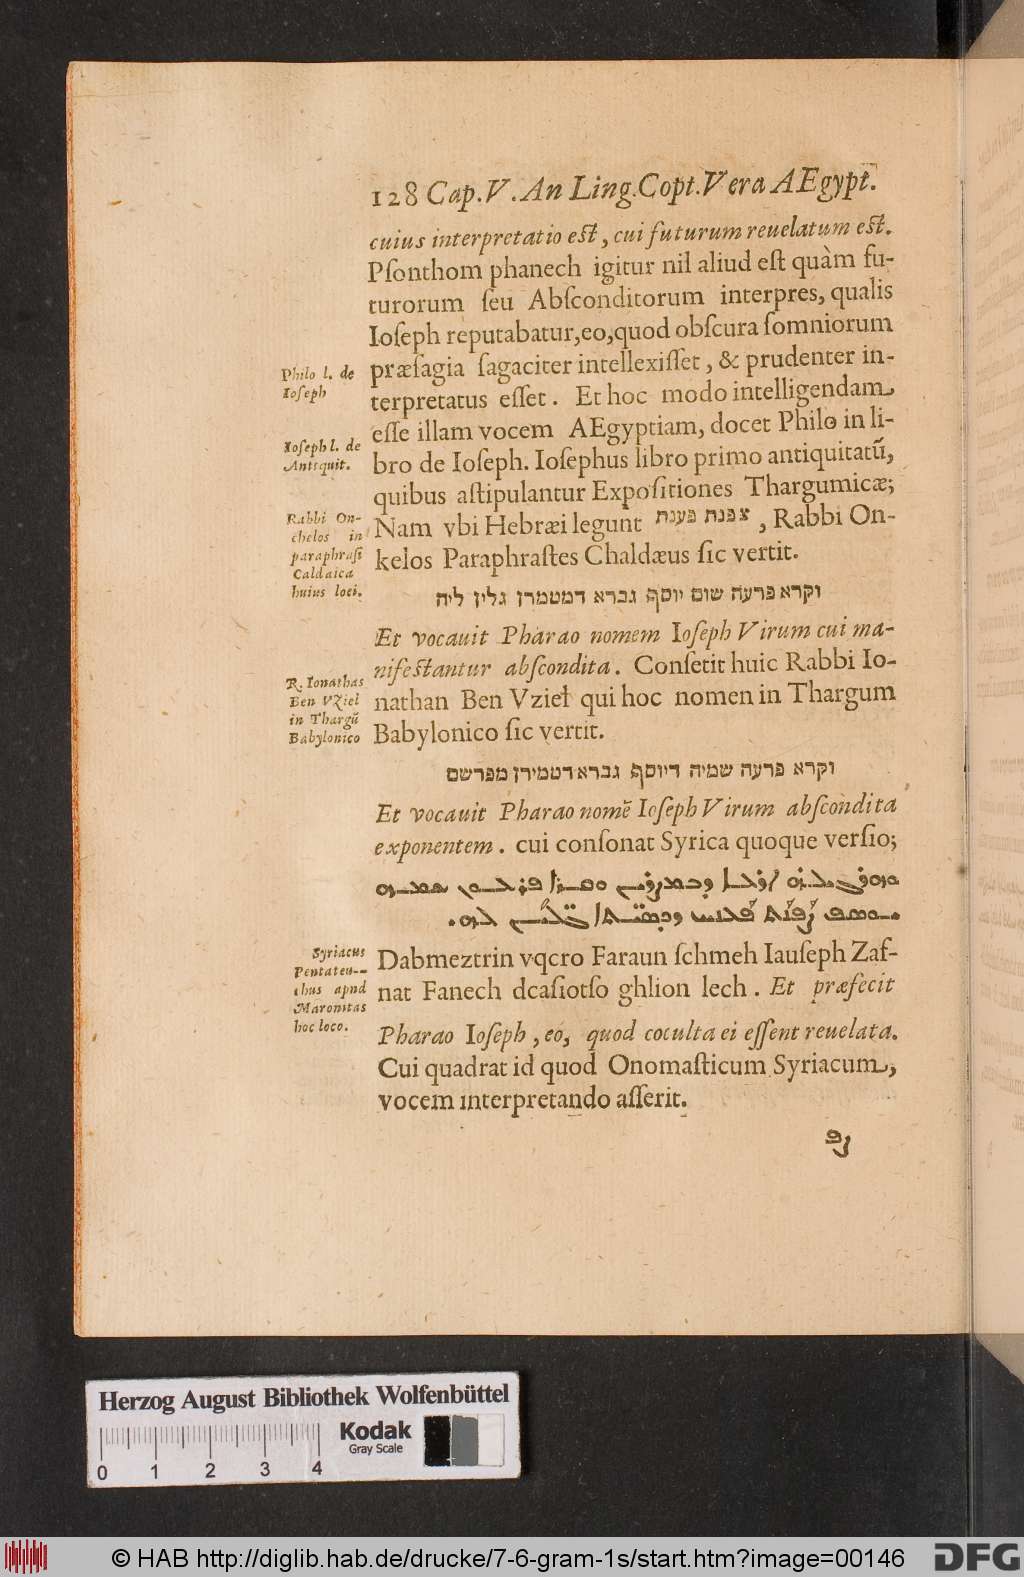 128 Cap. V. An Ling. Copt. Vera AEgypt.
cuius interpretatio est, cui futurum reuelatum est.
Pſonthom phanech igitur nil aliud eſt quàm fu-
turorum ſeu Abſconditorum interpres, qualis
Ioſeph reputabatur, eo, quod obſcura ſomniorum
præſagia ſagaciter intellexiſſet, & prudenter in-
terpretatus eſſet. Et hoc modo intelligendam
eſſe illam vocem AEgyptiam, docet Philo in li-
bro de Ioſeph. Ioſephus libro primo antiquitatū,
quibus aſtipulantur Expoſitiones Thargumicæ;
Nam vbi Hebræi legunt צפנת פענת, Rabbi On-
kelos Paraphraſtes Chaldæus ſic vertit.
וקרא פרעה שום יוסף גברא דמטמרן גלין ליה
Et vocauit Pharao nomem Ioſeph Virum cui ma-
nifestantur abſcondita. Conſetit huic Rabbi Io-
nathan Ben Vziel qui hoc nomen in Thargum
Babylonico ſic vertit.
וקרא פרעה שמיה דיוסף גברא דטמירן מפרשם
Et vocauit Pharao nomē Ioſeph Virum abſcondita
exponentem. cui conſonat Syrica quoque verſio;
Dabmeztrin vqcro Faraun ſchmeh Iauſeph Zaf-
nat Fanech dcaſiotſo ghlion lech. Et præfecit
Pharao Ioſeph, eo, quod coculta ei eſſent reuelata.
Cui quadrat id quod Onomaſticum Syriacum,
vocem interpretando aſſerit.
ܨܦ
Philo l. de
Ioſeph
Ioſeph l. de
Antiquit.
Rabbi On-
chelos in
paraphraſi
Caldaica
huius loci.
R. Ionathas
Ben VZiel
in Thargū
Babylonico
Syriacus
Pentateu--
chus apnd
Maronitas
hoc loco.
Herzog August Bibliothek Wolfenbüttel
Kodak
Gray Scale
0 1 2 3 4
© HAB http://diglib.hab.de/drucke/7-6-gram-1s/start.htm?image=00146
DFG